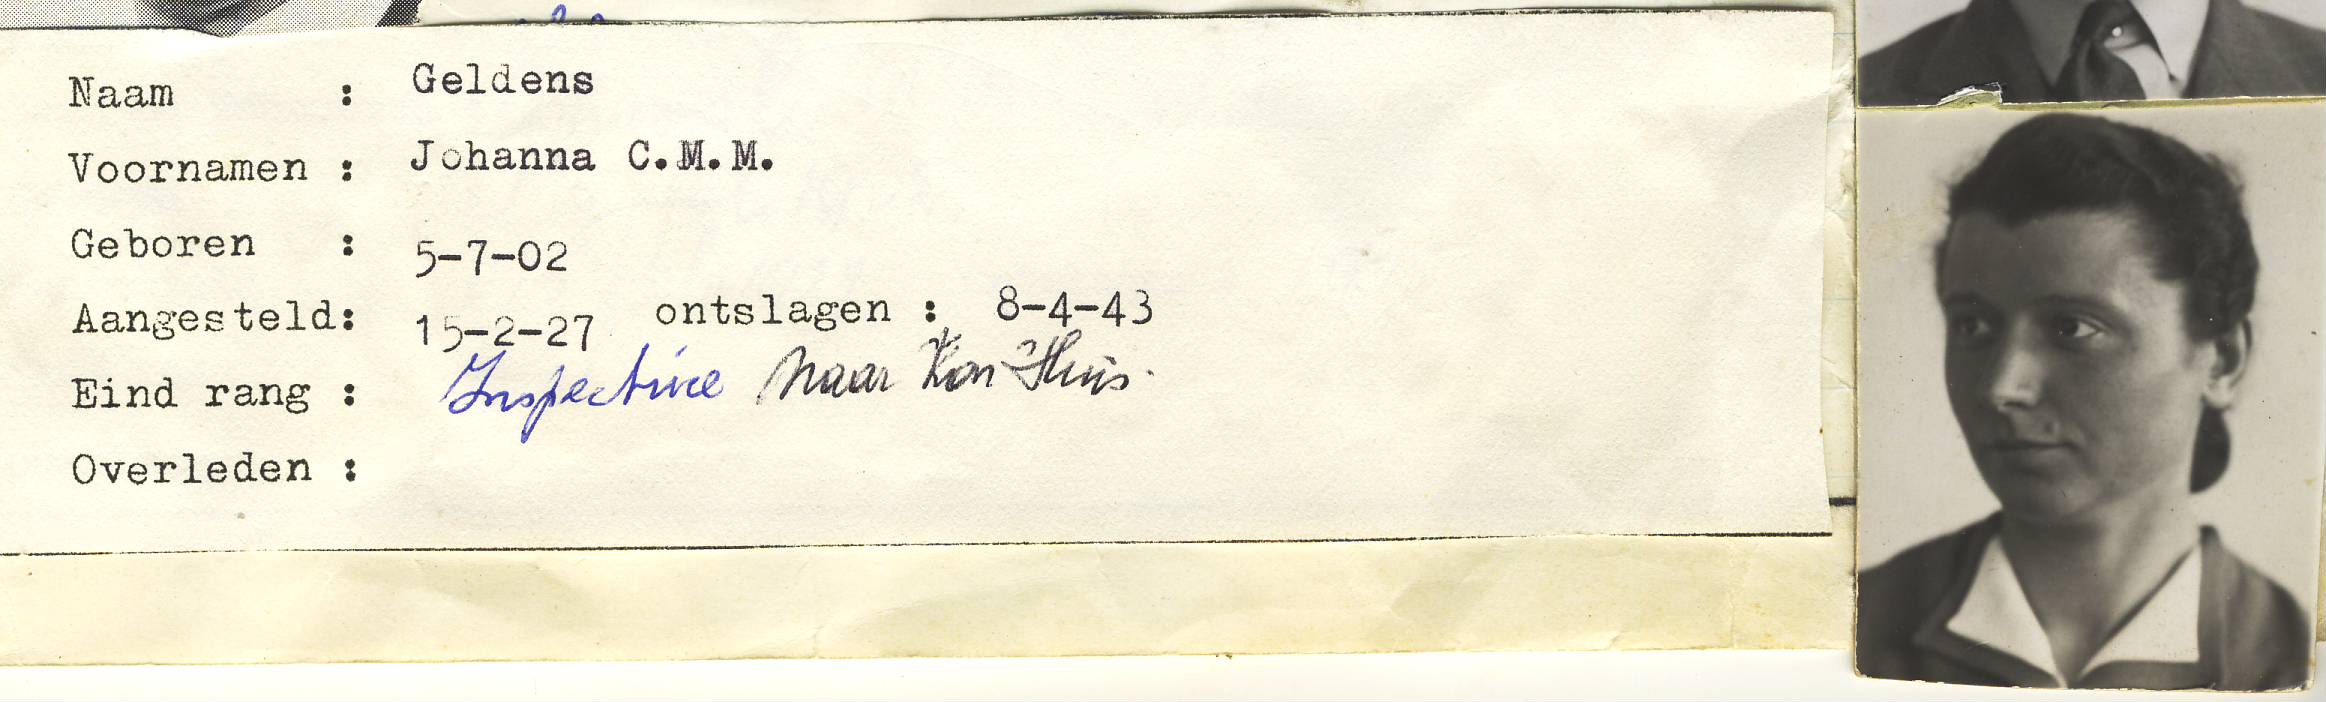 Naam : Geldens
Voornamen : Johanna C.M.M.
Geboren : 5-7-02
Aangesteld: 15-2-27 ontslagen : 8-4-43
Eind rang : Inspectrice naar Kon Huis.
Overleden :